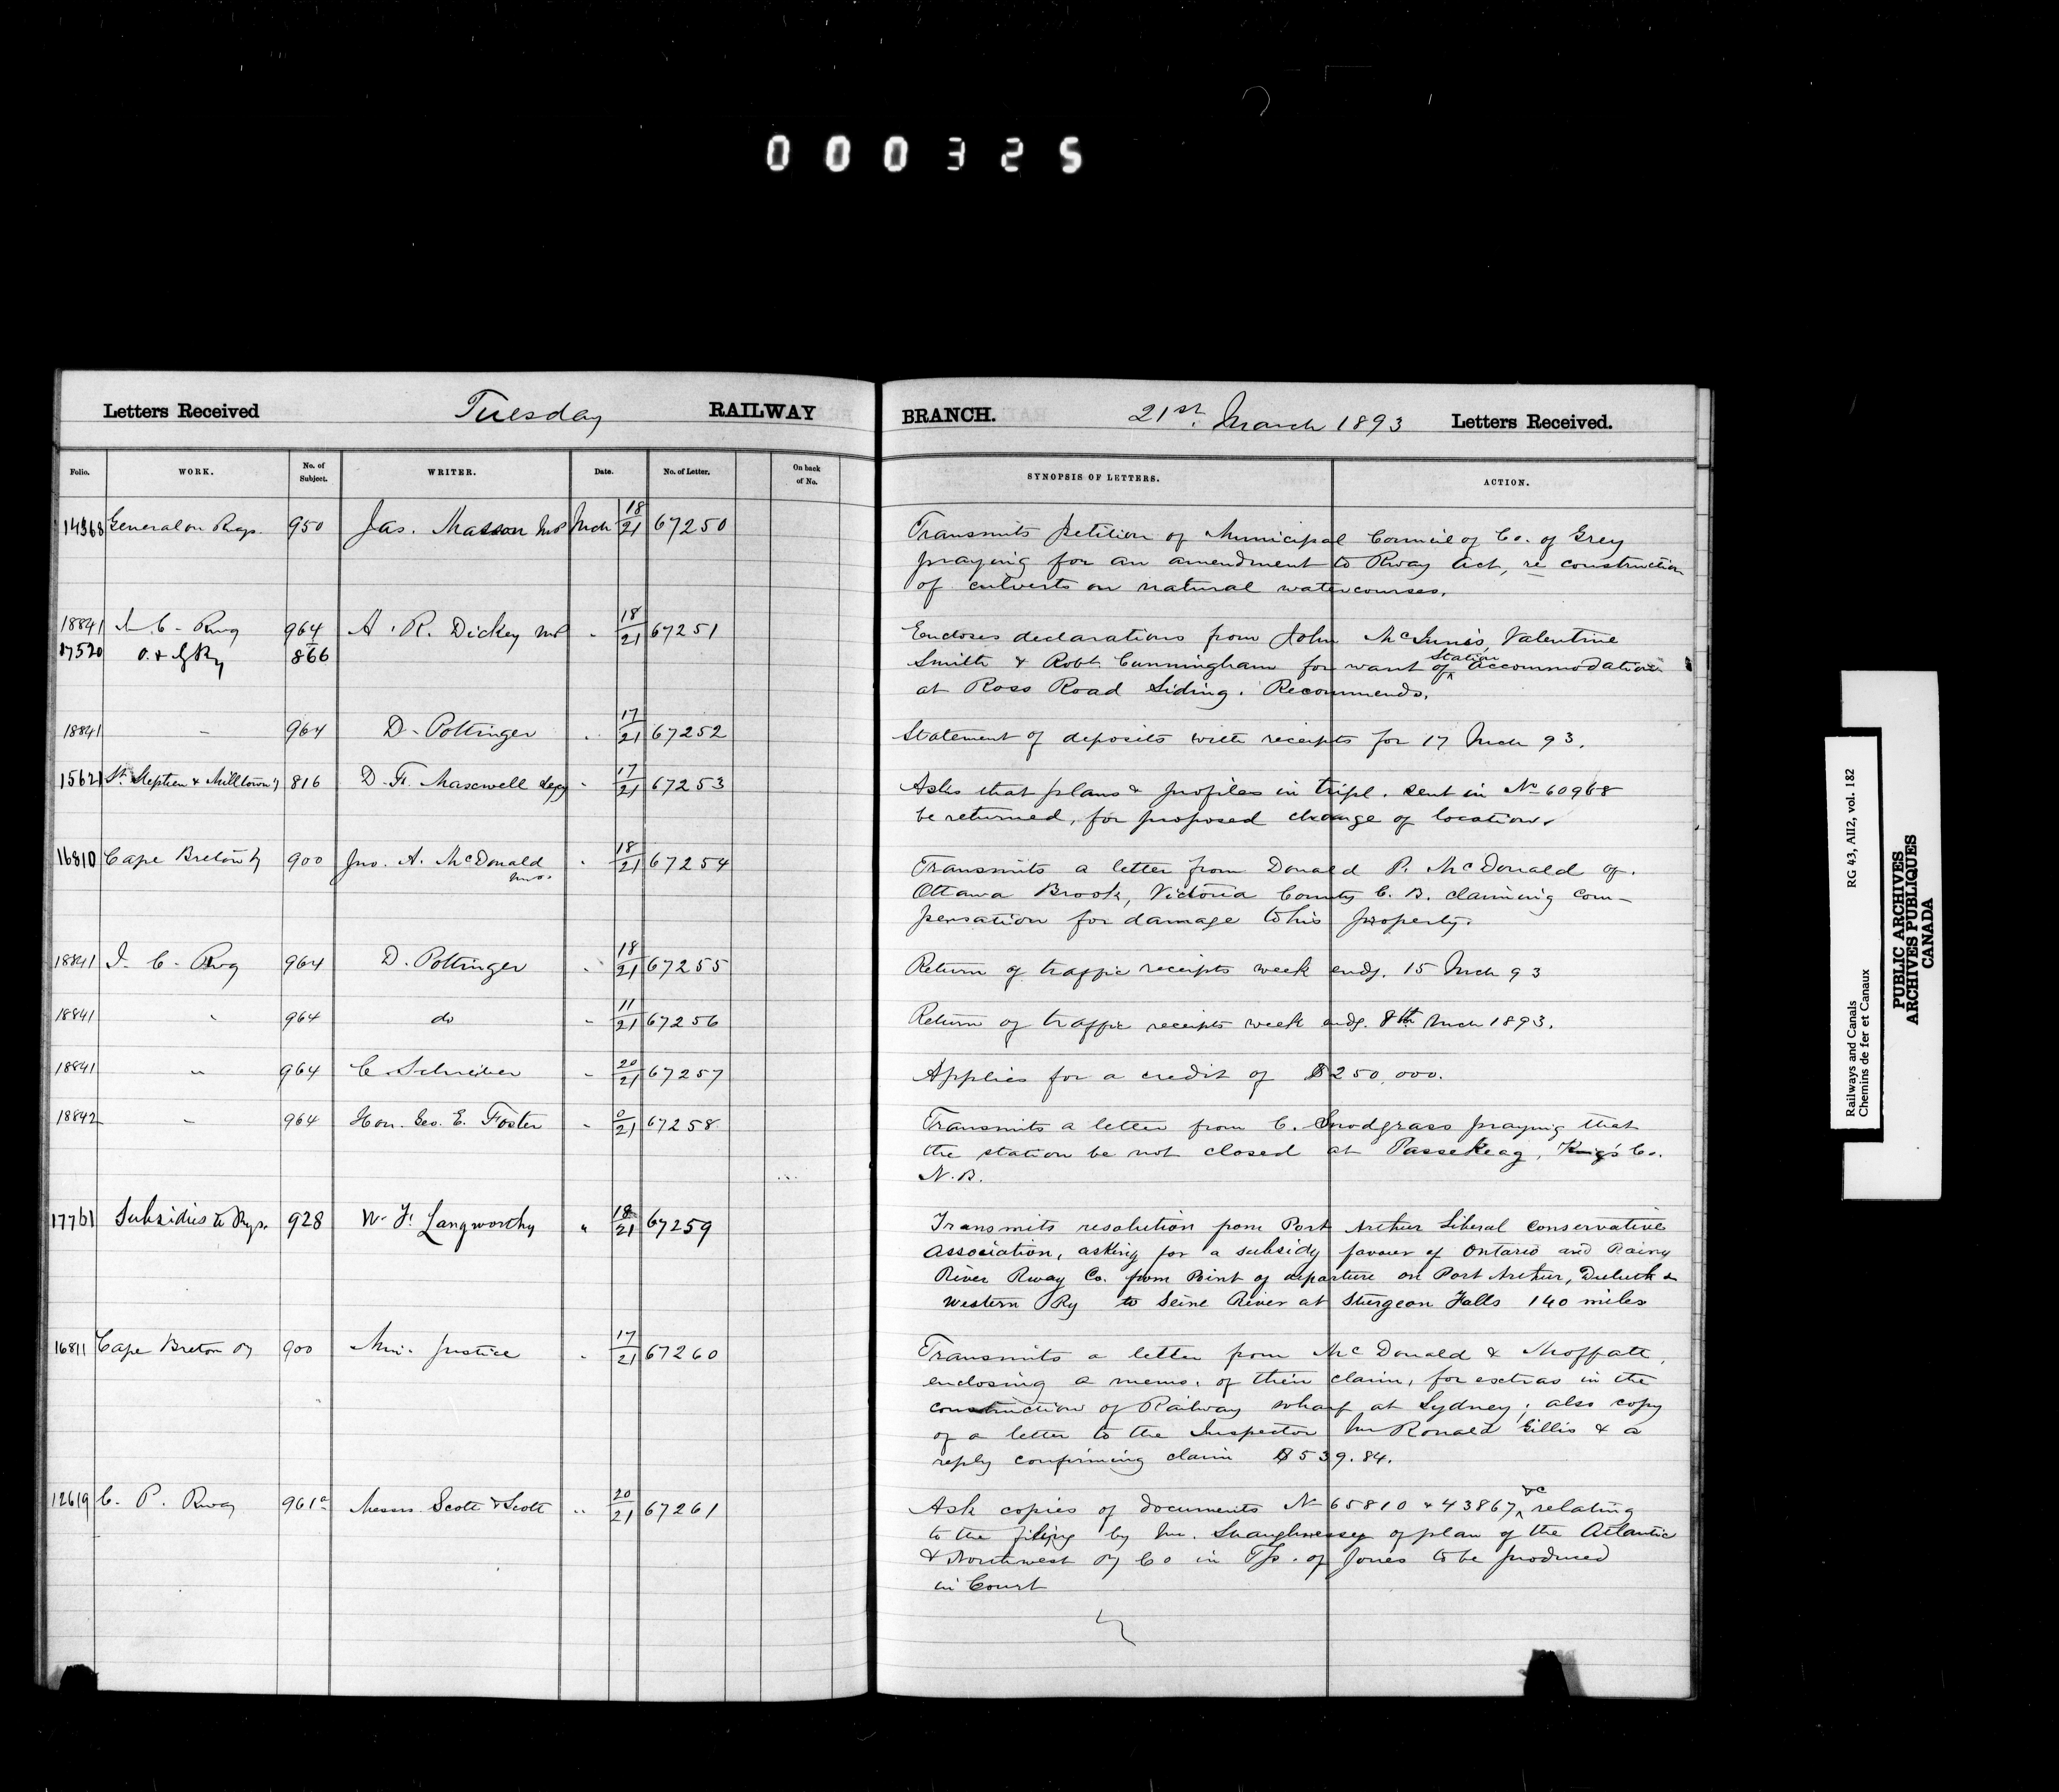 000325
Letters Received Tuesday RAILWAY BRANCH. 21st. March 1893 Letters Received.
Folio. WORK. No. of Subject. WRITER. Date. No. of Letter. On back of No. SYNOPSIS OF LETTERS. ACTION.
14368 General on Rys. 950 Jas. Masson MP Mch 18/21 67250 Transmits petition of Municipal Council of Co. of Grey
praying for an amendment to Rway Act, re construction
of culverts on natural watercourses.
18841 I. C. Rwy 964 A. R. Dickey MP " 18/21 67251 Encloses declarations from John McInnis, Valentine
17520 O. & G Ry 866 Smith & Robt. Cunningham for want of Station accommodation
at Ross Road Siding. Recommends.
18841 " 964 D. Pottinger " 17/21 67252 Statement of deposits with receipts for 17 Mch 93.
15621 St. Stephen & Milltown Ry 816 D. F. Maxwell " 17/21 67253 Asks that plans & profiles in tripl. sent in No 60968
be returned, for proposed change of location.
16810 Cape Breton Ry 900 Jno. A. McDonald " 18/21 67254 Transmits a letter from Donald P. McDonald of
Ottawa Brook, Victoria County C. B. claiming com-
pensation for damage to his property.
18841 I. C. Rwy 964 D. Pottinger " 18/21 67255 Return of traffic receipts week endg. 15 Mch 93
18841 " 964 do " 11/21 67256 Return of traffic receipts week endg. 8th Mch 1893.
18841 " 964 C. Schreiber " 20/21 67257 Applies for a credit of $250,000.
18842 " 964 Hon. Geo. E. Foster " 0/21 67258 Transmits a letter from C. Snodgrass praying that
the station be not closed at Passekeag, King's Co.
N. B.
17761 Subsidies to Rys. 928 W. F. Langworthy " 18/21 67259 Transmits resolution from Port Arthur Liberal Conservative
Association, asking for a subsidy favour of Ontario and Rainy
River Rway Co. from Point of departure on Port Arthur, Duluth &
Western Ry to Seine River at Sturgeon Falls 140 miles
16811 Cape Breton Ry 900 Min. Justice " 17/21 67260 Transmits a letter from McDonald & Moffatt,
enclosing a memo. of their claim, for extras in the
construction of Railway wharf at Sydney; also copy
of a letter to the Inspector Mr Ronald Gillis & a
reply confirming claim $539.84.
12619 C. P. Rway 961a Messrs Scott & Scott " 20/21 67261 Ask copies of documents No 65810 & 43867, &c relating
to the filing by Mr. Shaughnessy of plan of the Atlantic
& Northwest Ry Co in Tp. of Jones to be produced
in Court
Railways and Canals RG 43, AII2, vol. 182
Chemins de fer et Canaux
PUBLIC ARCHIVES
ARCHIVES PUBLIQUES
CANADA